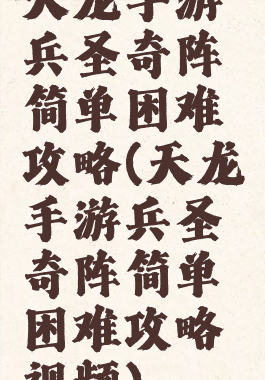 天龙手游
兵圣奇阵
简单困难
攻略(天龙
手游兵圣
奇阵简单
困难攻略
视频)